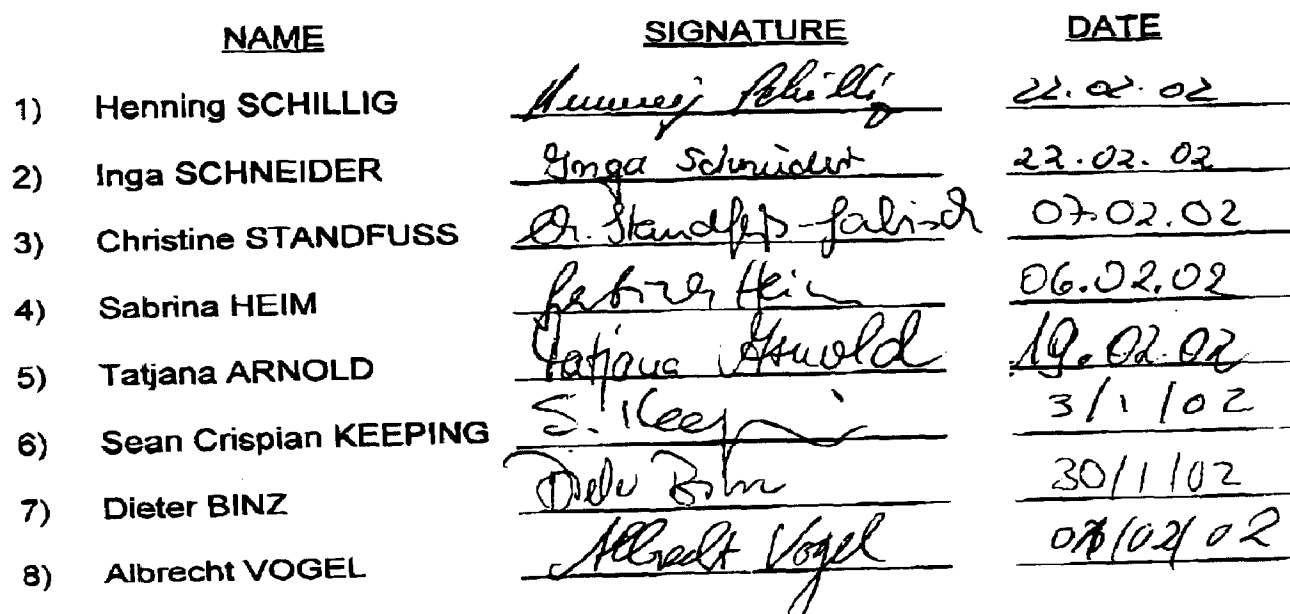 NAME SIGNATURE DATE
1) Henning SCHILLIG Henning Schillig 22.02.02
2) Inga SCHNEIDER Inga Schneider 22.02.02
3) Christine STANDFUSS Ch. Standfuß-Gabisch 07.02.02
4) Sabrina HEIM Sabrina Heim 06.02.02
5) Tatjana ARNOLD Tatjana Arnold 19.02.02
6) Sean Crispian KEEPING S. Keeping 3/1/02
7) Dieter BINZ Dieter Binz 30/1/02
8) Albrecht VOGEL Albrecht Vogel /02/02